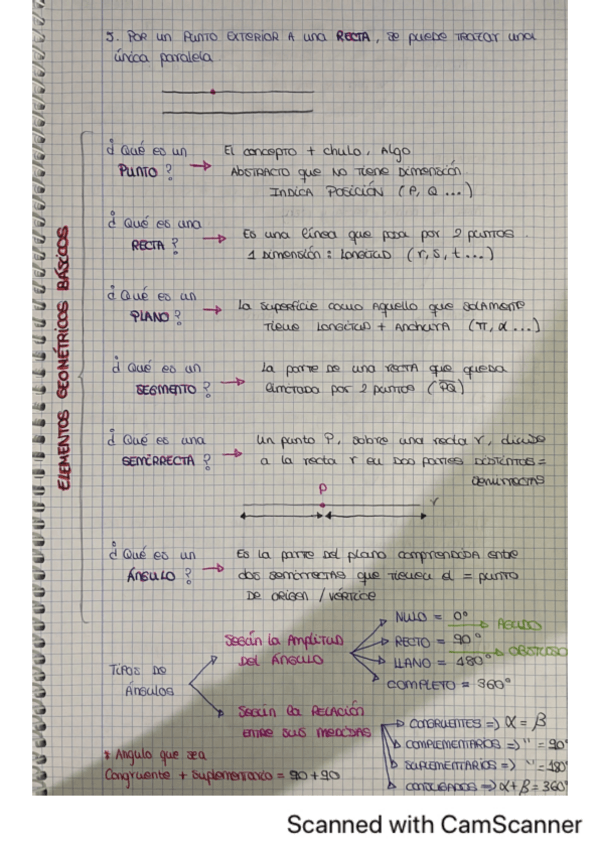 5. Por un Punto exterior A una RECTA, se puede Trazar una
única paralela.
¿Qué es un
PUNTO?
El concepto + chulo. Algo
ABSTRACTO que NO Tiene Dimensión.
INDICA Posición (P, Q ...)
¿Qué es una
RECTA?
Es una línea que pasa por 2 puntos.
1 Dimensión: Longitud (r, s, t...)
¿Qué es un
PLANO?
La superficie como Aquello que solamente
Tiene Longitud + Anchura (π, α ...)
¿Qué es un
SEGMENTO?
La parte de una RECTA que queda
limitado por 2 puntos (PQ)
¿Qué es una
SEMIRRECTA?
Un punto P, sobre una recta r, divide
a la recta r en dos partes distintas =
semirrectas
P
r
¿Qué es un
ÁNGULO?
Es la parte del plano comprendida entre
dos semirrectas que tienen el = punto
de origen / vértice
ELEMENTOS GEOMÉTRICOS BÁSICOS
Tipos de
Ángulos
Según la Amplitud
del Ángulo
NULO = 0°
AGUDO
RECTO = 90°
OBTUSO
LLANO = 180°
COMPLETO = 360°
Según la Relación
entre sus medidas
CONGRUENTES => α = β
COMPLEMENTARIOS => " = 90°
SUPLEMENTARIOS => " = 180°
CONJUGADOS => α+β = 360°
* Angulo que sea
Congruente + Suplementario = 90+90
Scanned with CamScanner